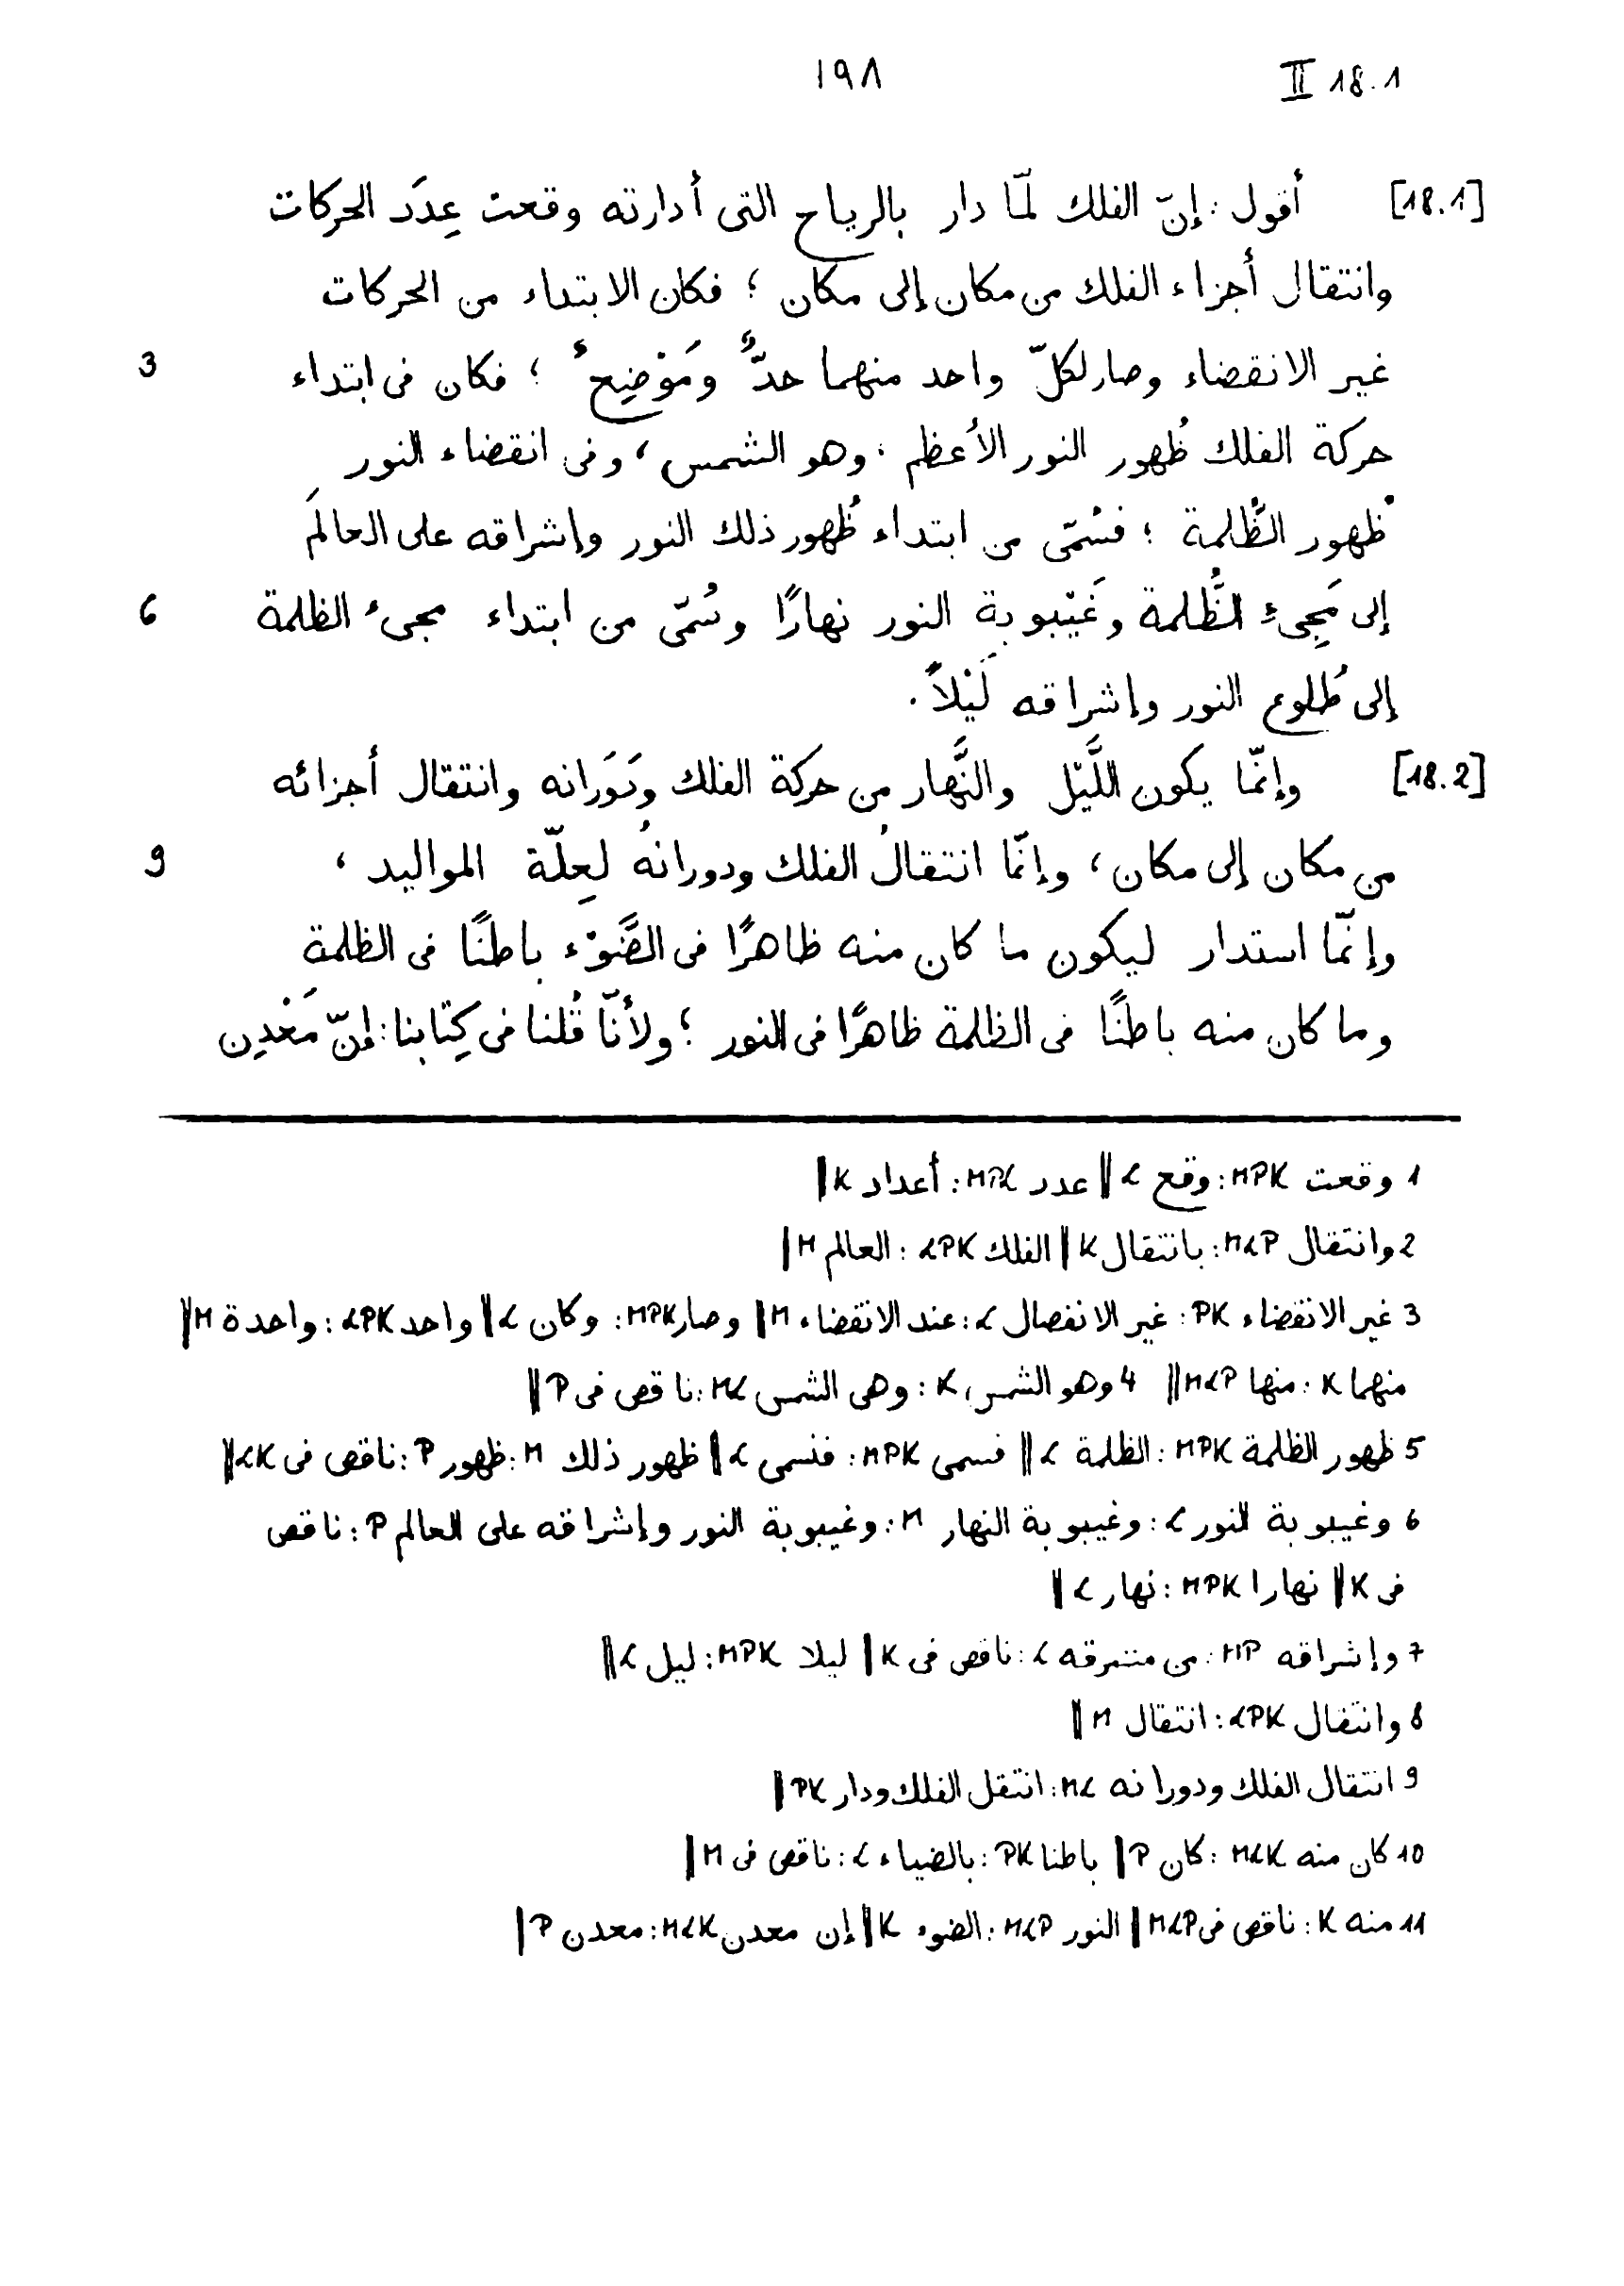 ١٩٨ II 18.1
[18.1] أقول : إنّ الفلك لمّا دار بالرياح التى أدارته وقعت عِدَد الحركات
وانتقال أجزاء الفلك من مكان إلى مكان ؛ فكان الابتداء من الحركات
3 غير الانقضاء وصار لكلّ واحد منهما حدٌّ ومَوْضِعٌ ؛ فكان فى ابتداء
حركة الفلك ظُهور النور الأعظم ، وهو الشمس ، وفى انقضاء النور
ظُهور الظُّلمة ؛ فسُمّى من ابتداء ظُهور ذلك النور وإشراقه على العالَم
6 إلى مَجِىءِ الظُّلمة وغَيْبوبة النور نهارًا وسُمّى من ابتداء مجىء الظلمة
إلى طُلوع النور وإشراقه لَيْلاً .
[18.2] وإنّما يكون اللَّيْل والنَّهار من حركة الفلك ودَوَرانه وانتقال أجزائه
9 من مكان إلى مكان ، وإنّما انتقالُ الفلك ودورانُه لعِلّة المواليد ،
وإنّما استدار ليكون ما كان منه ظاهرًا فى الضَّوْء باطنًا فى الظلمة
وما كان منه باطنًا فى الظلمة ظاهرًا فى النور ؛ ولأنّا قُلنا فى كِتابنا : إنّ مَعْدِن
1 وقعت MPK : وقع L || عدد MPL : أعداد K ||
2 وانتقال MLP : بانتقال K || الفلك LPK : العالم M ||
3 غير الانقضاء PK : غير الانفصال L : عند الانقضاء M || وصار MPK : وكان L || واحد LPK : واحدة M ||
منهما K : منها MLP || 4 وهو الشمس K : وهى الشمس ML : ناقص فى P ||
5 ظهور الظلمة MPK : الظلمة L || فسمى MPK : فنسمى L || ظهور ذلك M : ظهور P : ناقص فى LK ||
6 وغيبوبة النور L : وغيبوبة النهار M : وغيبوبة النور وإشراقه على العالم P : ناقص
فى K || نهارا MPK : نهار L ||
7 وإشراقه MP : من مشرقه L : ناقص فى K || ليلا MPK : ليل L ||
8 وانتقال LPK : انتقال M ||
9 انتقال الفلك ودورانه ML : انتقل الفلك ودار PK ||
10 كان منه MLK : كان P || باطنا PK : بالضياء L : ناقص فى M ||
11 منه K : ناقص فى MLP || النور MLP : الضوء K || إن معدن MLK : معدن P ||